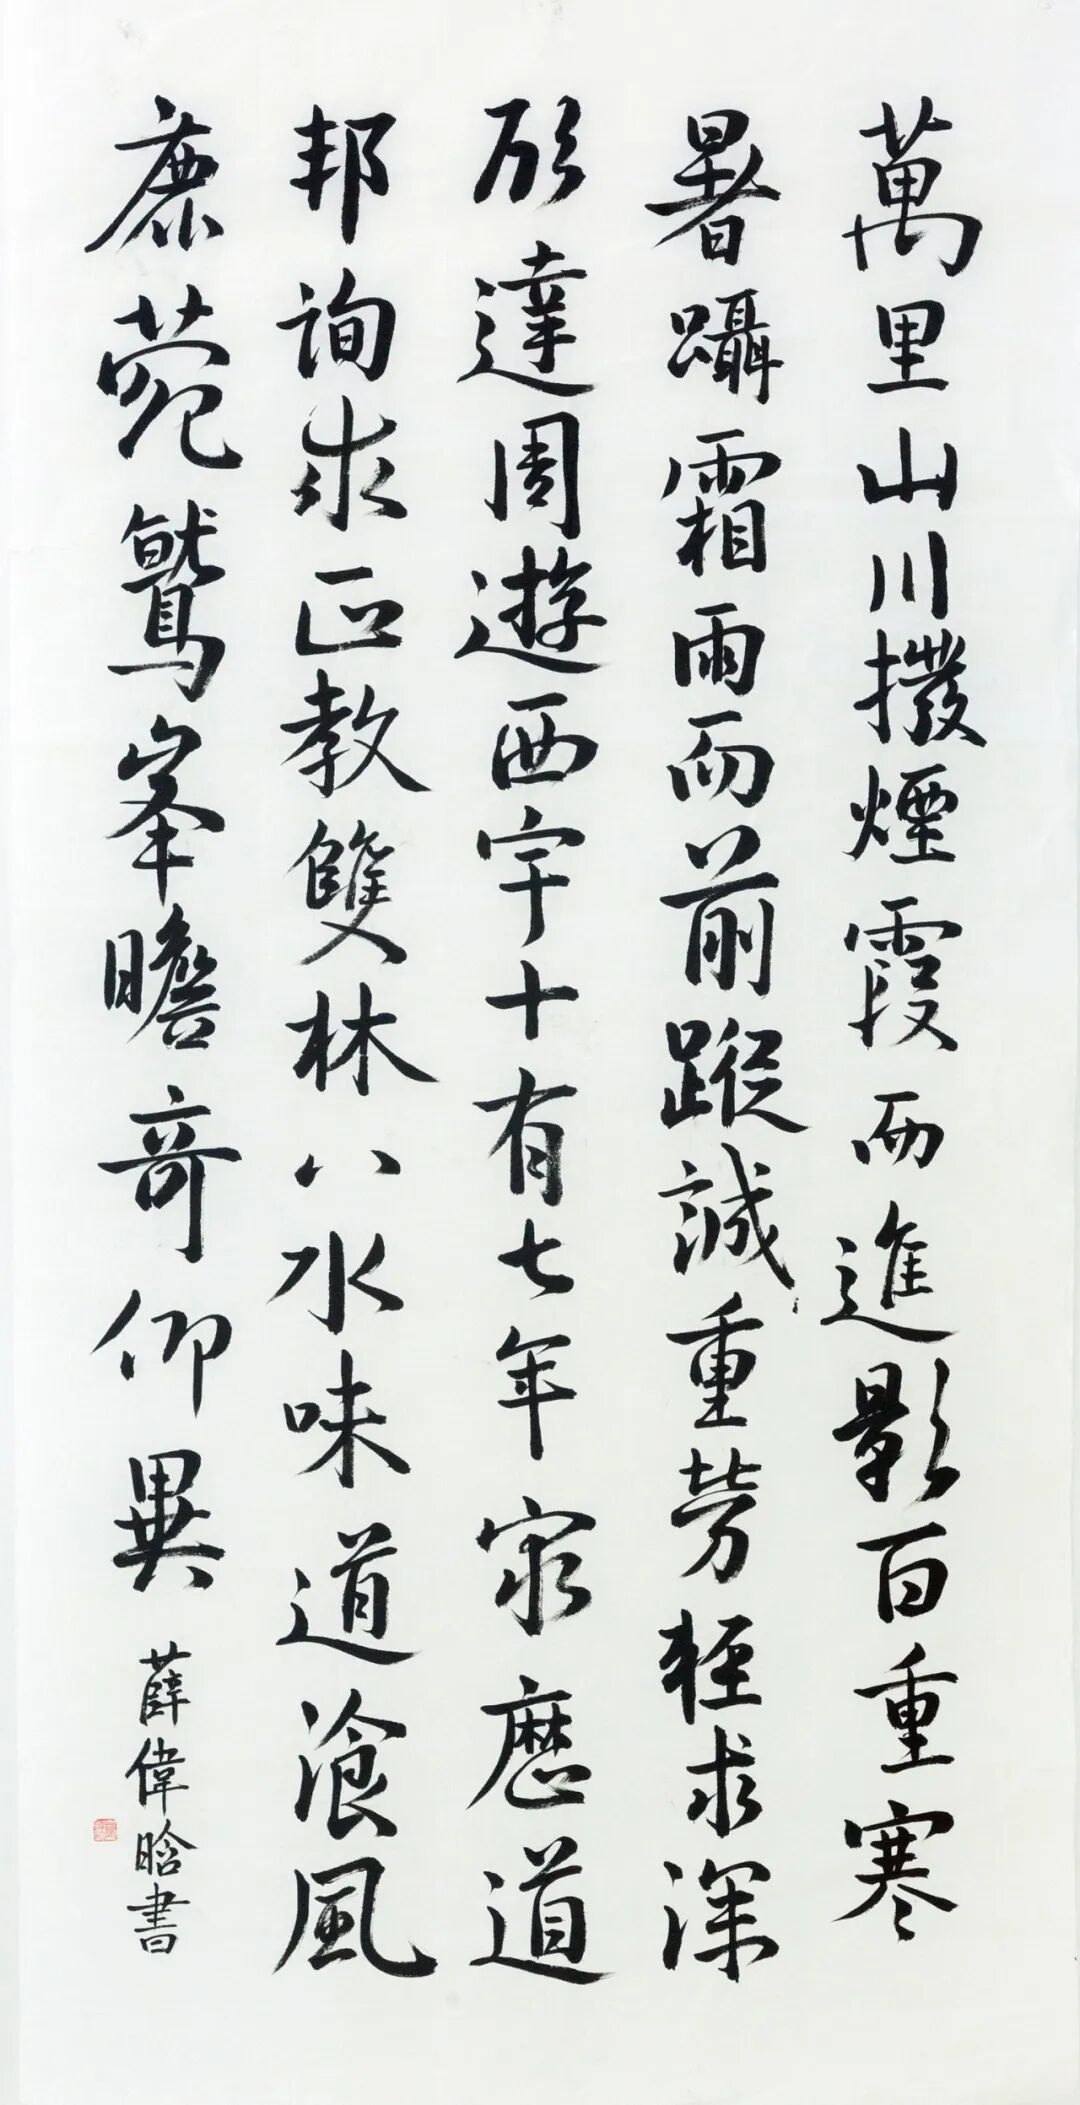 萬里山川撥煙霞而進影百重寒
暑躡霜雨而前蹤誠重勞輕求深
願達周遊西宇十有七年窮歷道
邦詢求正教雙林八水味道飡風
鹿菀鷲峯瞻奇仰異
薛偉晗書